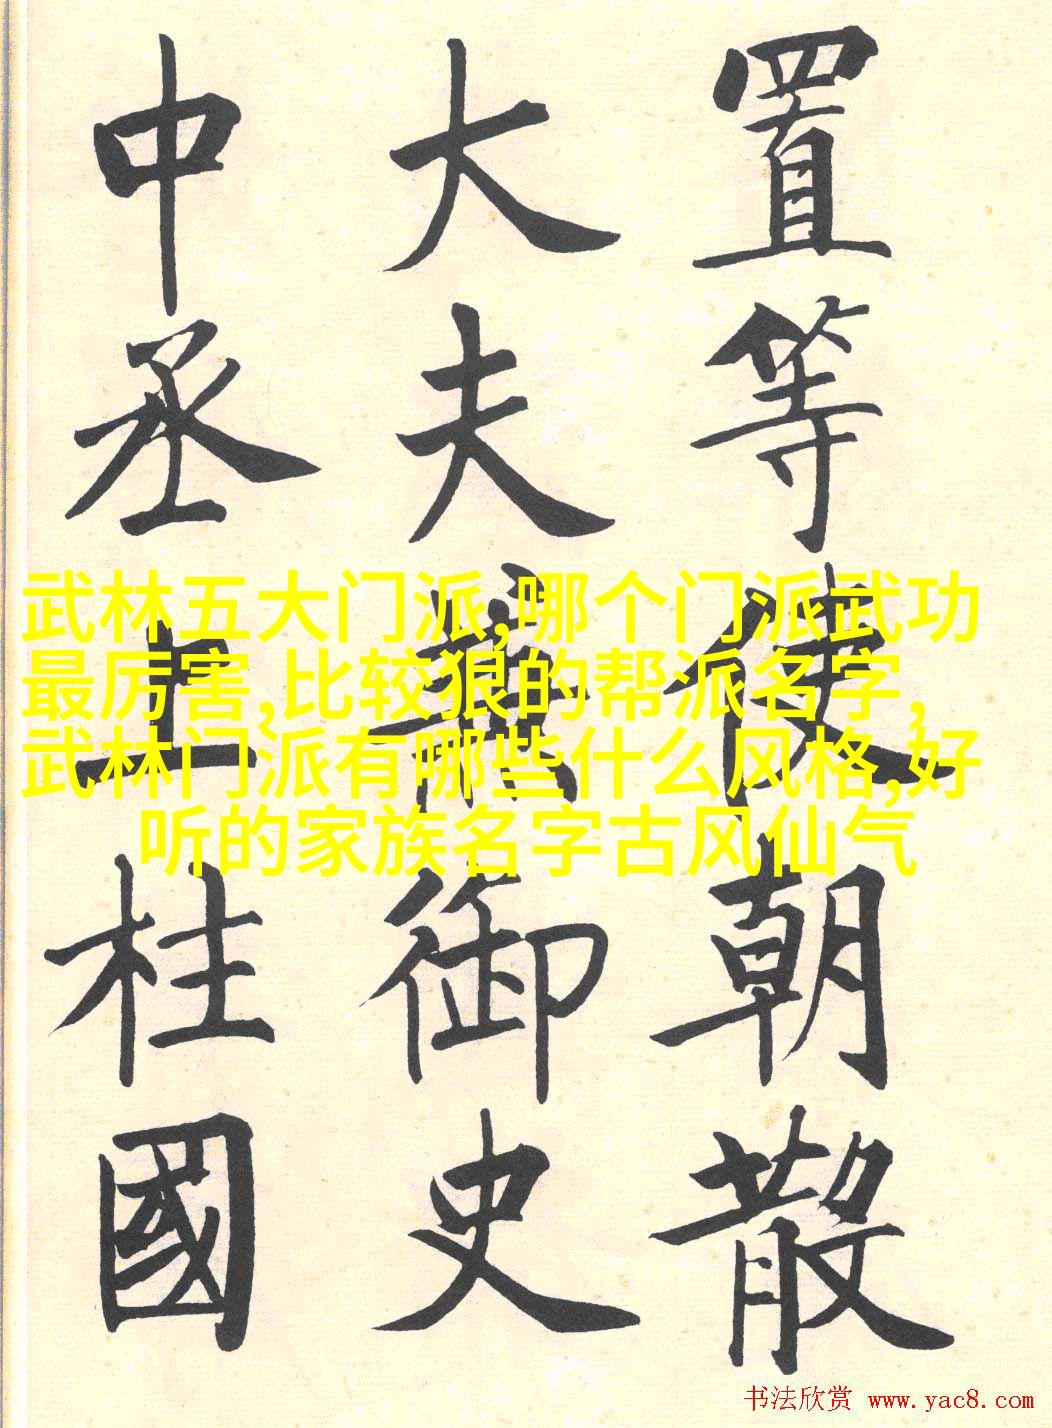 置等使朝散
大夫兼御史
中丞上柱國
武林五大门派,哪个门派武功
最厉害,比较狠的帮派名字，
武林门派有哪些什么风格,好
听的家族名字古风仙气
书法欣赏 www.yac8.com